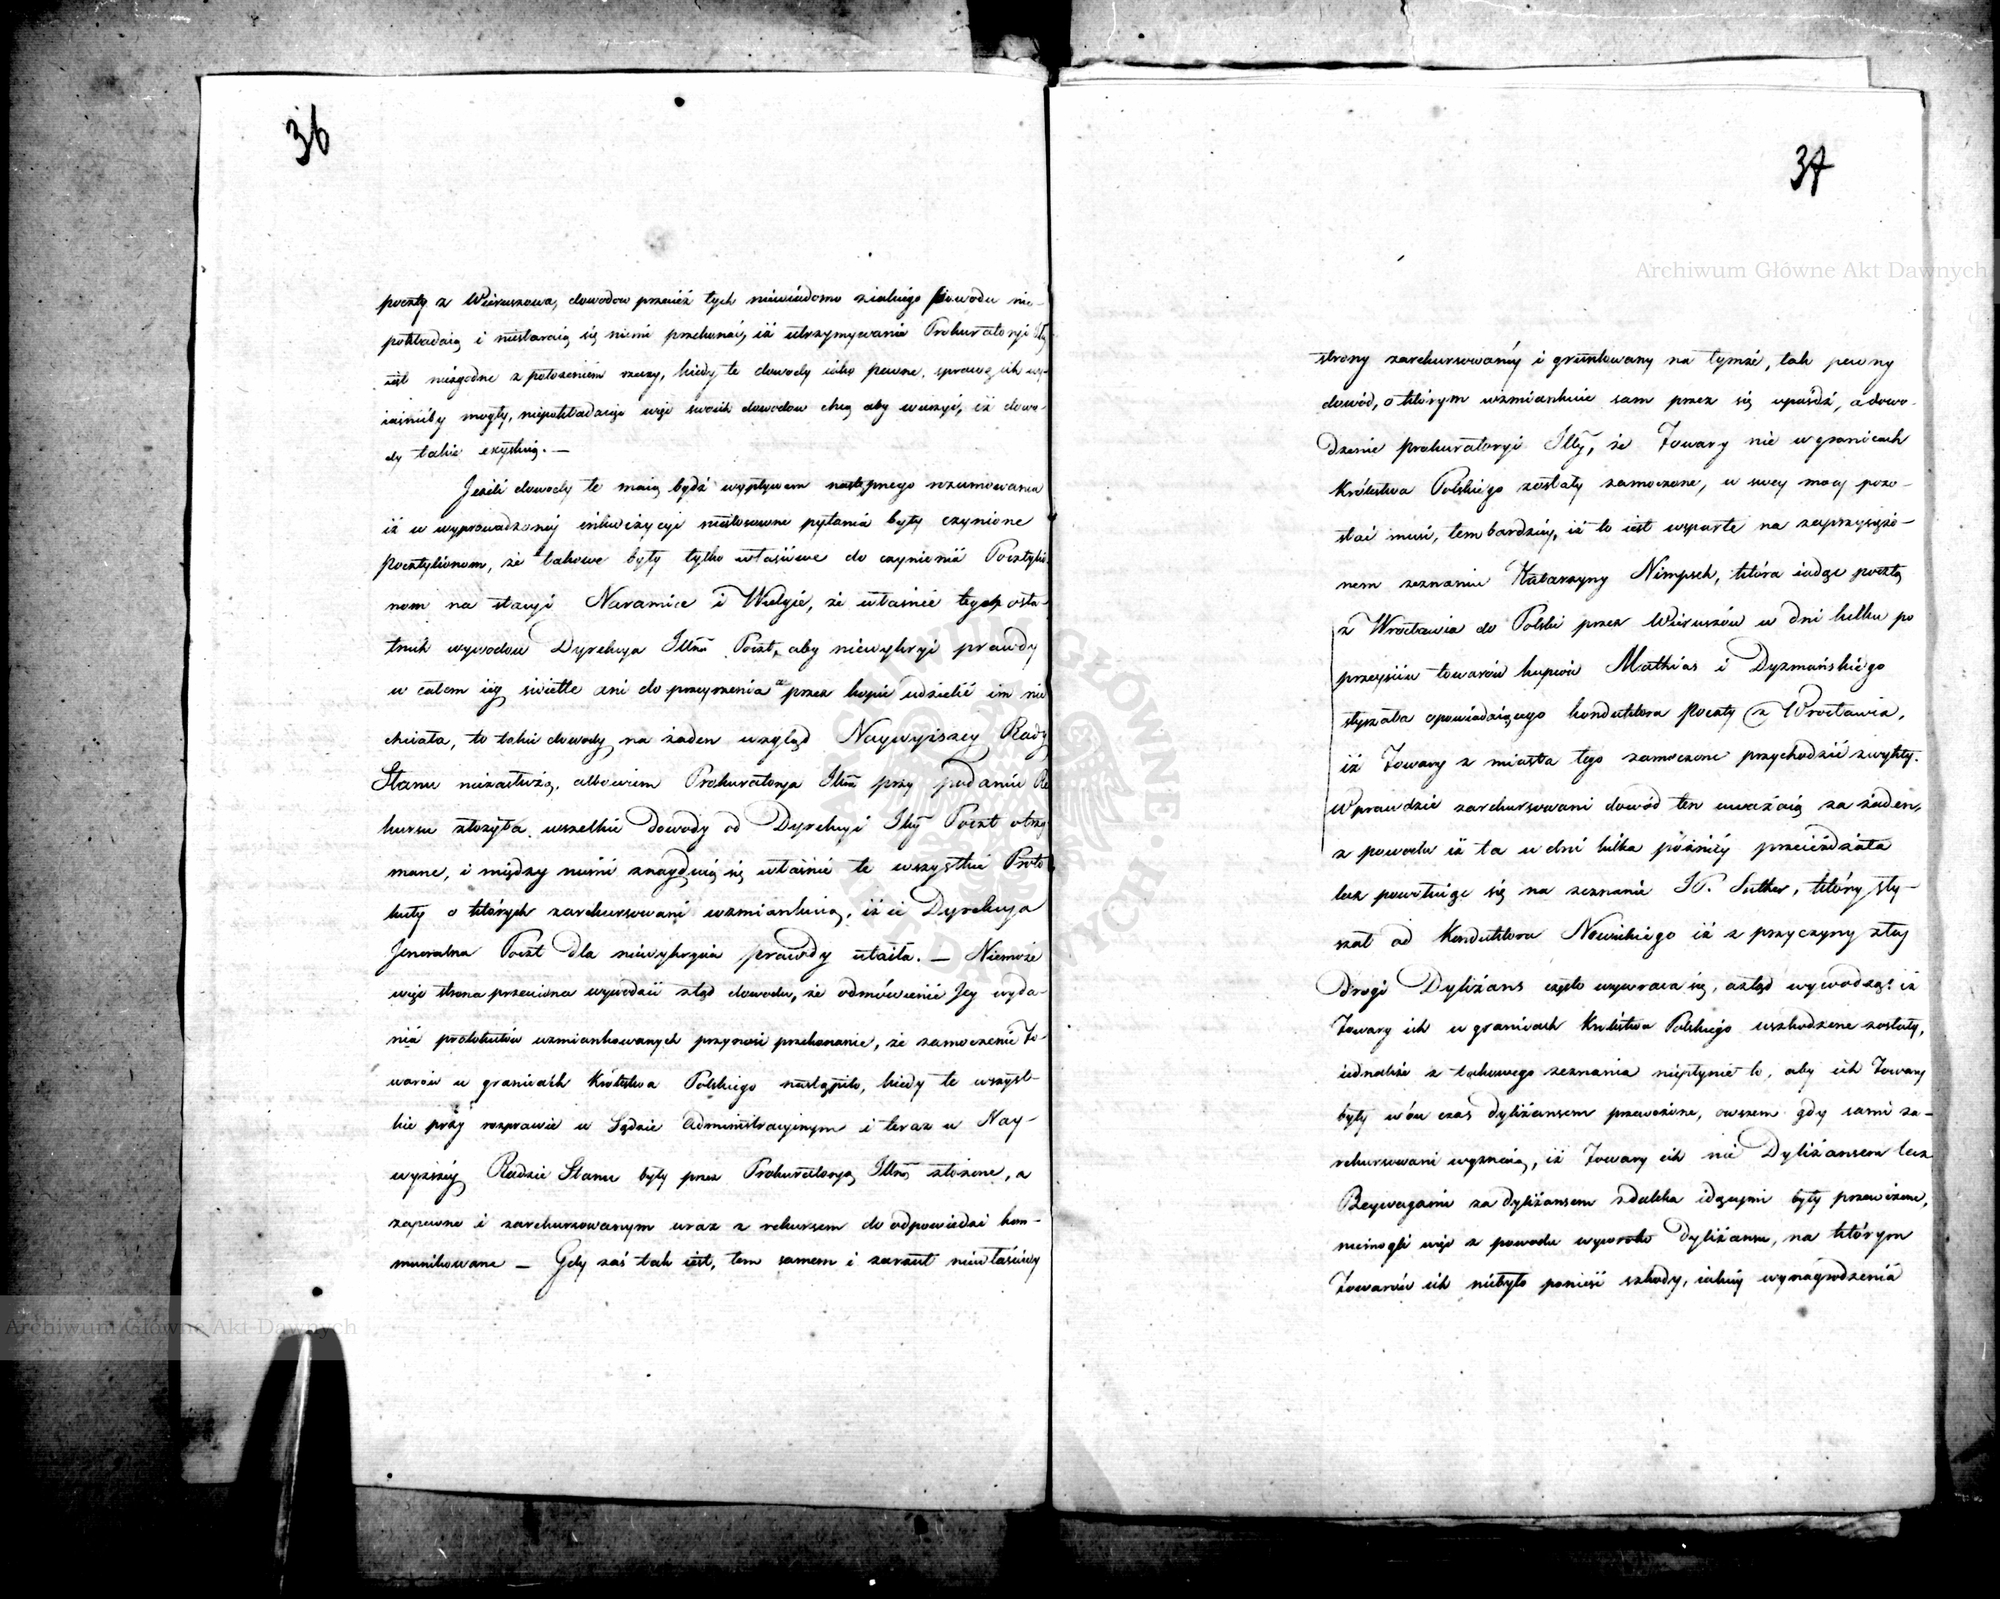 36
poczty z Wieruszowa, dowodow przecież tych niewiadomo z iakiego powodu nie-
pokładaią i niestaraią się niemi przekonać, iż utrzymywania Prokuratoryi
iest niezgodne z położeniem rzeczy, kiedy te dowody iako pewne, sprawę ich wy-
iaśnićby mogły, niepokładaiąc więc swoich dowodow chcą aby wierzyć, iż dowo-
dy takie exystuią. —
Jeżeli dowody te maią bydź wypływem następnego rozumowania
iż w wyprowadzonej inkwizycyi niestosowne pytania były czynione
pocztylionom, że takowe były tylko właściwe do czynienia Pocztylio-
nom na stacyi Naramice i Wielgie, że właśnie tych osta-
tnich wywodow Dyrekcya Jllna Poczt, aby niewykryć prawdy
w całem iey świetle ani do przeyrzenia przez kopie udzielić im nie
chciała, to takie dowody na żaden wzgląd Naywyższey Rady
Stanu niezasłużą, albowiem Prokuratorya Jllna przy podaniu Re
kursu złożyła wszelkie Dowody od Dyrekcyi Jlly Poczt otrzy
mane, i między niemi znayduią się właśnie te wszystkie Proto
kuły o których zarekursowani wzmiankuią, iż ie Dyrekcya
Jeneralna Poczt dla niewykrycia prawdy utaiła. — Niemoże
więc strona przeciwna wywodzić ztąd dowodu, że odmówienie Jey wyda-
nia protokułów wzmiankowanych przynosi przekonanie, że zamoczenie To-
warów w granicach Królestwa Polskiego nastąpiło, kiedy te wszyst-
kie przy rozprawie w Sądzie Administracyinym i teraz w Nay-
wyższéy Radzie Stanu były przez Prokuratoryą Jllną złożone, a
zapewne i zarekursowanym wraz z rekursem do odpowiedzi kom-
munikowane — Gdy zaś tak iest, tem samem i zarzut niewłaściwy
37
strony zarekursowanéy i gruntowany na tymże, tak pewny
dowód, o którym wzmiankuie sam przez się upaśdź, a dowo-
dzenie prokuratoryi Jlly, że Towary nie w granicach
Królestwa Polskiego zostały zamoczone, w swey mocy pozo-
stać musi, tem bardziéy, iż to iest wsparte na zaprzysiężo-
nem zeznaniu Katarzyny Nimpsch, która iadąc pocztą
z Wrocławia do Polski przez Wieruszów w dni kilku po
przeyściu towarów kupców Mathias i Dyzmańskiego
słyszała opowiadaiącego konduktora Poczty z Wrocławia,
iż Towary z miasta tego zamoczone przychodzić zwykły.
Wprawdzie zarekursowani dowód ten uważaią za żaden,
z powodu iż ta w dni kilka późniéy przeieżdżała
lecz powołuiąc się na zeznanie K. Suther, który sły-
szał od Konduktora Nowickiego iż z przyczyny złey
Drogi Dyliżans często wywraca się, a ztąd wywodząc iż
Towary ich w granicach Królestwa Polskiego uszkodzone zostały,
iednakże z takowego zeznania niepłynie to, aby ich Towary
były w ów czas dyliżansem przewożone, owszem gdy sami za-
rekursowani wyznaią, iż Towary ich nie Dyliżansem lecz
Beywagami za dyliżansem zdaleka idącymi były przewożone,
niemogli więc z powodu wywrotu Dyliżansu, na którym
Towarów ich niebyło ponieść szkody, iakiéy wynagrodzenia
Archiwum Główne Akt Dawnych
Archiwum Główne Akt Dawnych